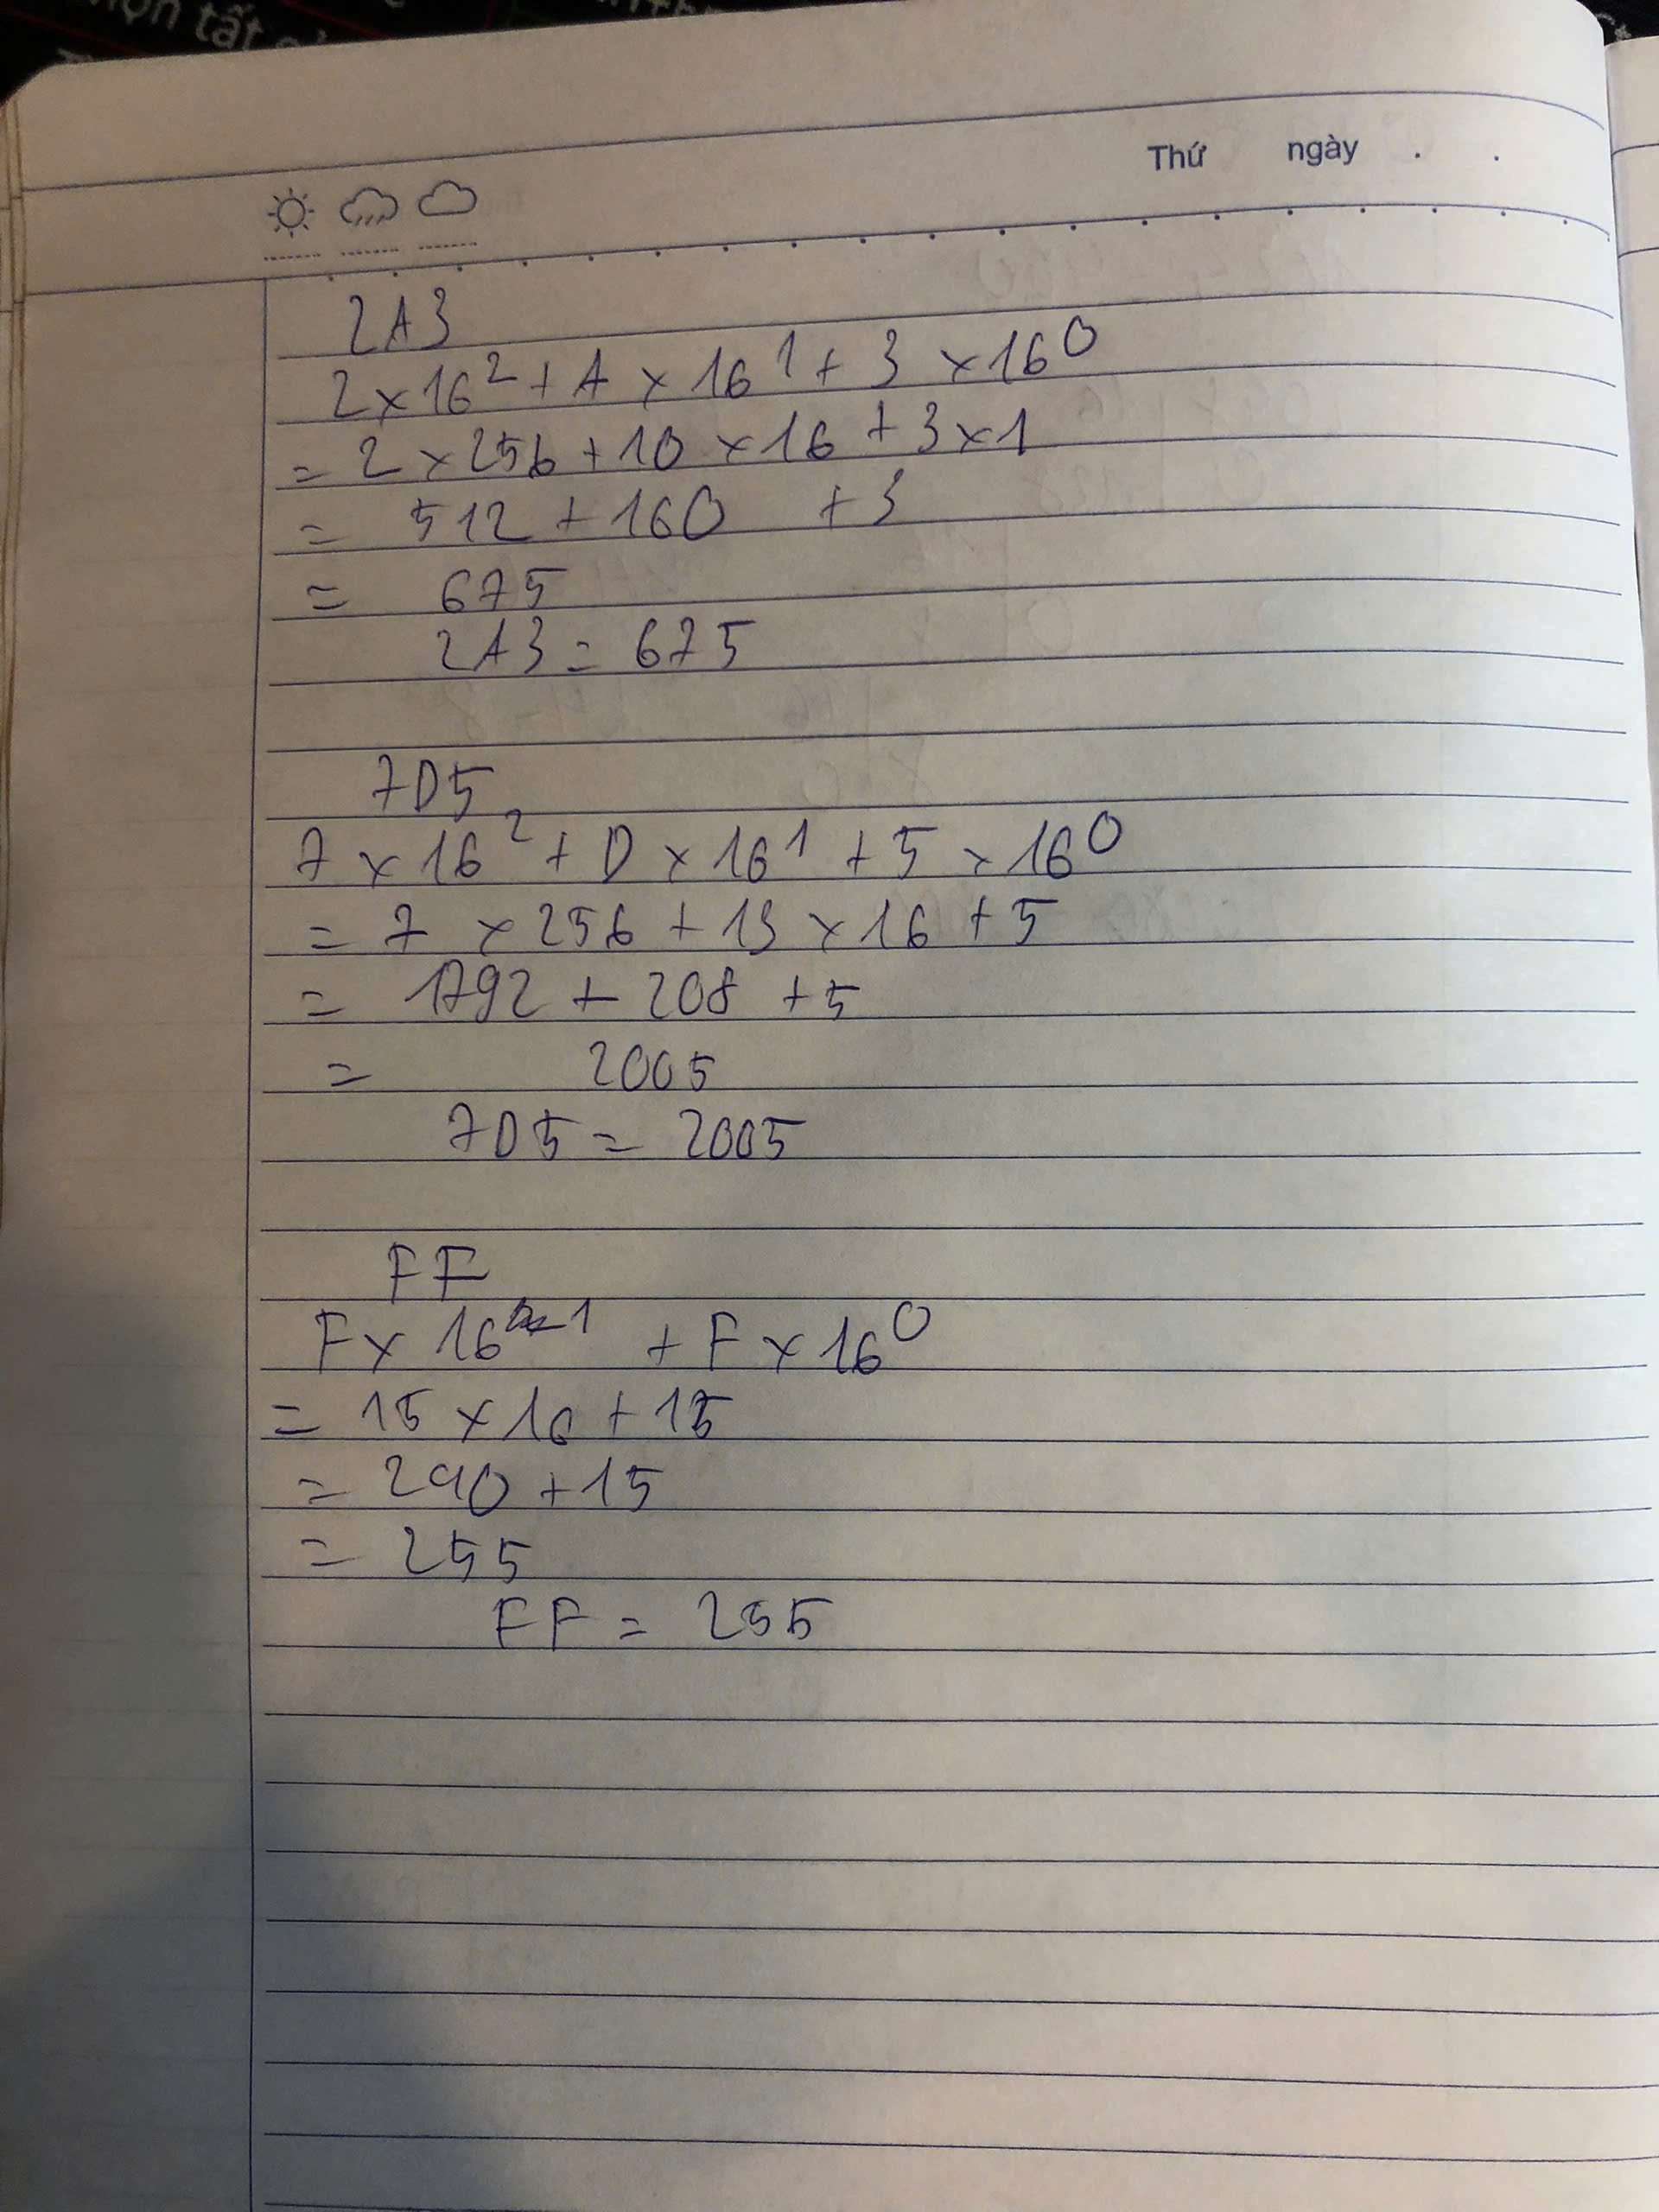 Thứ ngày . .
2A3
2 x 16² + A x 16¹ + 3 x 16⁰
= 2 x 256 + 10 x 16 + 3 x 1
= 512 + 160 + 3
= 675
2A3 = 675
7D5
7 x 16² + D x 16¹ + 5 x 16⁰
= 7 x 256 + 13 x 16 + 5
= 1792 + 208 + 5
= 2005
7D5 = 2005
FF
F x 16¹ + F x 16⁰
= 15 x 16 + 15
= 240 + 15
= 255
FF = 255